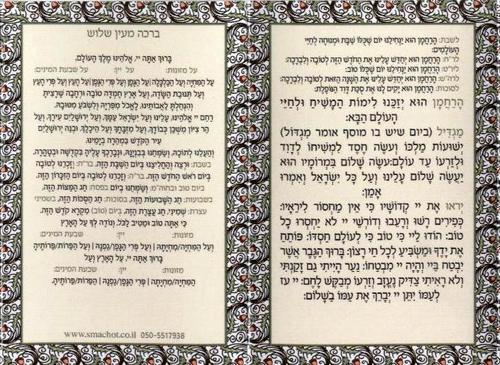 לשבת: הָרַחֲמָן הוּא יַנְחִילֵנוּ יוֹם שֶׁכֻּלּוֹ שַׁבָּת וּמְנוּחָה לְחַיֵּי
הָעוֹלָמִים:
לר"ח: הָרַחֲמָן הוּא יְחַדֵּשׁ עָלֵינוּ אֶת הַחֹדֶשׁ הַזֶּה לְטוֹבָה וְלִבְרָכָה:
הָרַחֲמָן הוּא יַנְחִילֵנוּ יוֹם שֶׁכֻּלּוֹ טוֹב:
הָרַחֲמָן הוּא יְחַדֵּשׁ עָלֵינוּ אֶת הַשָּׁנָה הַזֹּאת לְטוֹבָה וְלִבְרָכָה:
לסוכות: הָרַחֲמָן הוּא יָקִים לָנוּ אֶת סֻכַּת דָּוִד הַנּוֹפֶלֶת:
הָרַחֲמָן הוּא יְזַכֵּנוּ לִימוֹת הַמָּשִׁיחַ וּלְחַיֵּי
הָעוֹלָם הַבָּא:
מַגְדִּיל (ביום שיש בו מוסף אומר מִגְדּוֹל)
יְשׁוּעוֹת מַלְכּוֹ וְעֹשֶׂה חֶסֶד לִמְשִׁיחוֹ לְדָוִד
וּלְזַרְעוֹ עַד עוֹלָם: עֹשֶׂה שָׁלוֹם בִּמְרוֹמָיו הוּא
יַעֲשֶׂה שָׁלוֹם עָלֵינוּ וְעַל כָּל יִשְׂרָאֵל וְאִמְרוּ
אָמֵן:
יְראוּ אֶת יי קְדוֹשָׁיו כִּי אֵין מַחְסוֹר לִירֵאָיו:
כְּפִירִים רָשׁוּ וְרָעֵבוּ וְדוֹרְשֵׁי יי לֹא יַחְסְרוּ כָל
טוֹב: הוֹדוּ לַיי כִּי טוֹב כִּי לְעוֹלָם חַסְדּוֹ: פּוֹתֵחַ
אֶת יָדֶךָ וּמַשְׂבִּיעַ לְכָל חַי רָצוֹן: בָּרוּךְ הַגֶּבֶר אֲשֶׁר
יִבְטַח בַּיי וְהָיָה יי מִבְטַחוֹ: נַעַר הָיִיתִי גַּם זָקַנְתִּי
וְלֹא רָאִיתִי צַדִּיק נֶעֱזָב וְזַרְעוֹ מְבַקֶּשׁ לָחֶם: יי עֹז
לְעַמּוֹ יִתֵּן יי יְבָרֵךְ אֶת עַמּוֹ בַשָּׁלוֹם:
ברכה מעין שלוש
בָּרוּךְ אַתָּה יי, אֱלֹהֵינוּ מֶלֶךְ הָעוֹלָם,
על מזונות: על יין: על שבעת המינים:
עַל הַמִּחְיָה וְעַל הַכַּלְכָּלָה | עַל הַגֶּפֶן וְעַל פְּרִי הַגֶּפֶן | עַל הָעֵץ וְעַל פְּרִי הָעֵץ
וְעַל תְּנוּבַת הַשָּׂדֶה, וְעַל אֶרֶץ חֶמְדָּה טוֹבָה וּרְחָבָה שֶׁרָצִיתָ
וְהִנְחַלְתָּ לַאֲבוֹתֵינוּ, לֶאֱכֹל מִפִּרְיָהּ וְלִשְׂבֹּעַ מִטּוּבָהּ,
רַחֵם יי אֱלֹהֵינוּ, עָלֵינוּ וְעַל יִשְׂרָאֵל עַמֶּךָ, וְעַל יְרוּשָׁלַיִם עִירֶךָ, וְעַל
הַר צִיּוֹן מִשְׁכַּן כְּבוֹדֶךָ, וְעַל מִזְבַּחֲךָ וְעַל הֵיכָלֶךָ, וּבְנֵה יְרוּשָׁלַיִם
עִיר הַקֹּדֶשׁ בִּמְהֵרָה בְיָמֵינוּ,
וְהַעֲלֵנוּ לְתוֹכָהּ, וְשַׂמְּחֵנוּ בְּבִנְיָנָהּ, וּנְבָרֶכְךָ עָלֶיהָ בִּקְדֻשָּׁה וּבְטָהֳרָה.
בשבת: וּרְצֵה וְהַחֲלִיצֵנוּ בְּיוֹם הַשַּׁבָּת הַזֶּה. בר"ח: וְזָכְרֵנוּ לְטוֹבָה
בְּיוֹם רֹאשׁ הַחֹדֶשׁ הַזֶּה. בר"ה: וְזָכְרֵנוּ לְטוֹבָה בְּיוֹם הַזִּכָּרוֹן הַזֶּה.
ביום טוב ובחוה"מ: וְשַׂמְּחֵנוּ בְּיוֹם בפסח: חַג הַמַּצּוֹת הַזֶּה,
בשבועות: חַג הַשָּׁבוּעוֹת הַזֶּה, בסוכות: חַג הַסֻּכּוֹת הַזֶּה, בשמיני
עצרת: שְׁמִינִי, חַג עֲצֶרֶת הַזֶּה, בְּיוֹם (טוֹב) מִקְרָא קֹדֶשׁ הַזֶּה.
כִּי אַתָּה טוֹב וּמֵטִיב לַכֹּל, וְנוֹדֶה לְּךָ עַל הָאָרֶץ
מזונות: יין: שבעת המינים:
וְעַל הַמִּחְיָה/מִחְיָתָהּ | וְעַל פְּרִי הַגֶּפֶן/גַּפְנָהּ | וְעַל הַפֵּרוֹת/פֵּרוֹתֶיהָ
בָּרוּךְ אַתָּה יי, עַל הָאָרֶץ וְעַל
מזונות: יין: שבעת המינים:
הַמִּחְיָה/מִחְיָתָהּ | פְּרִי הַגֶּפֶן/גַּפְנָהּ | הַפֵּרוֹת/פֵּרוֹתֶיהָ.
www.smachot.co.il 050-5517938